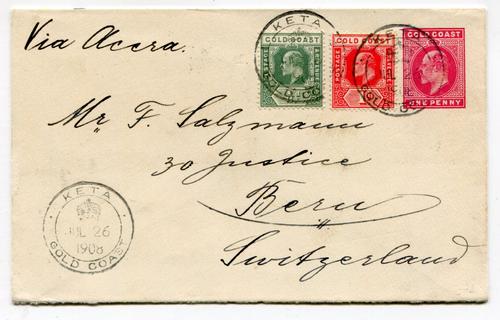 Via Accra.
KETA
GOLD COAST
GOLD COAST
POSTAGE
REVENUE
GOLD COAST
POSTAGE
GOLD COAST
ONE PENNY
Mr F. Salzmann
30 Justice
Bern
Switzerland
KETA
JUL 26
1908
GOLD COAST